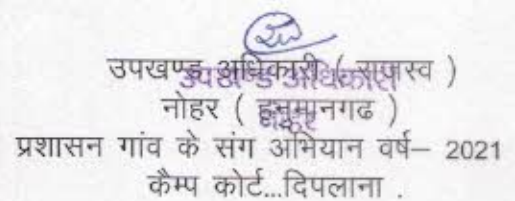 उपखण्ड अधिकारी ( राजस्व )
नोहर ( हनुमानगढ )
प्रशासन गांव के संग अभियान वर्ष– 2021
कैम्प कोर्ट...दिपलाना .